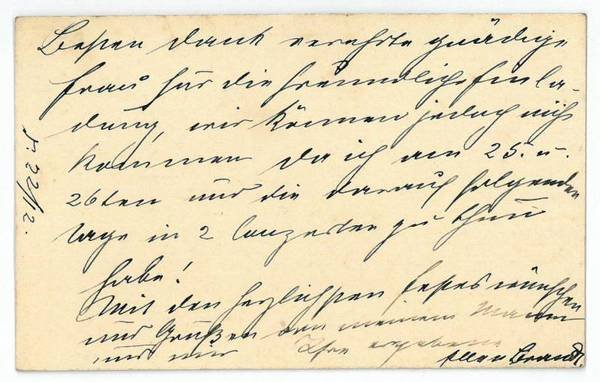 Besten Dank verehrte gnädige
Frau für die freundliche Einla-
dung, wir können jedoch nicht
kommen da ich am 25. u.
26ten und die darauf folgenden
Tage in 2 Conzerten zu thun
habe!
Mit den herzlichsten Festeswünschen
und Grüßen von meinem Mann
und mir Ihre ergebene
Brandt.
22/12.